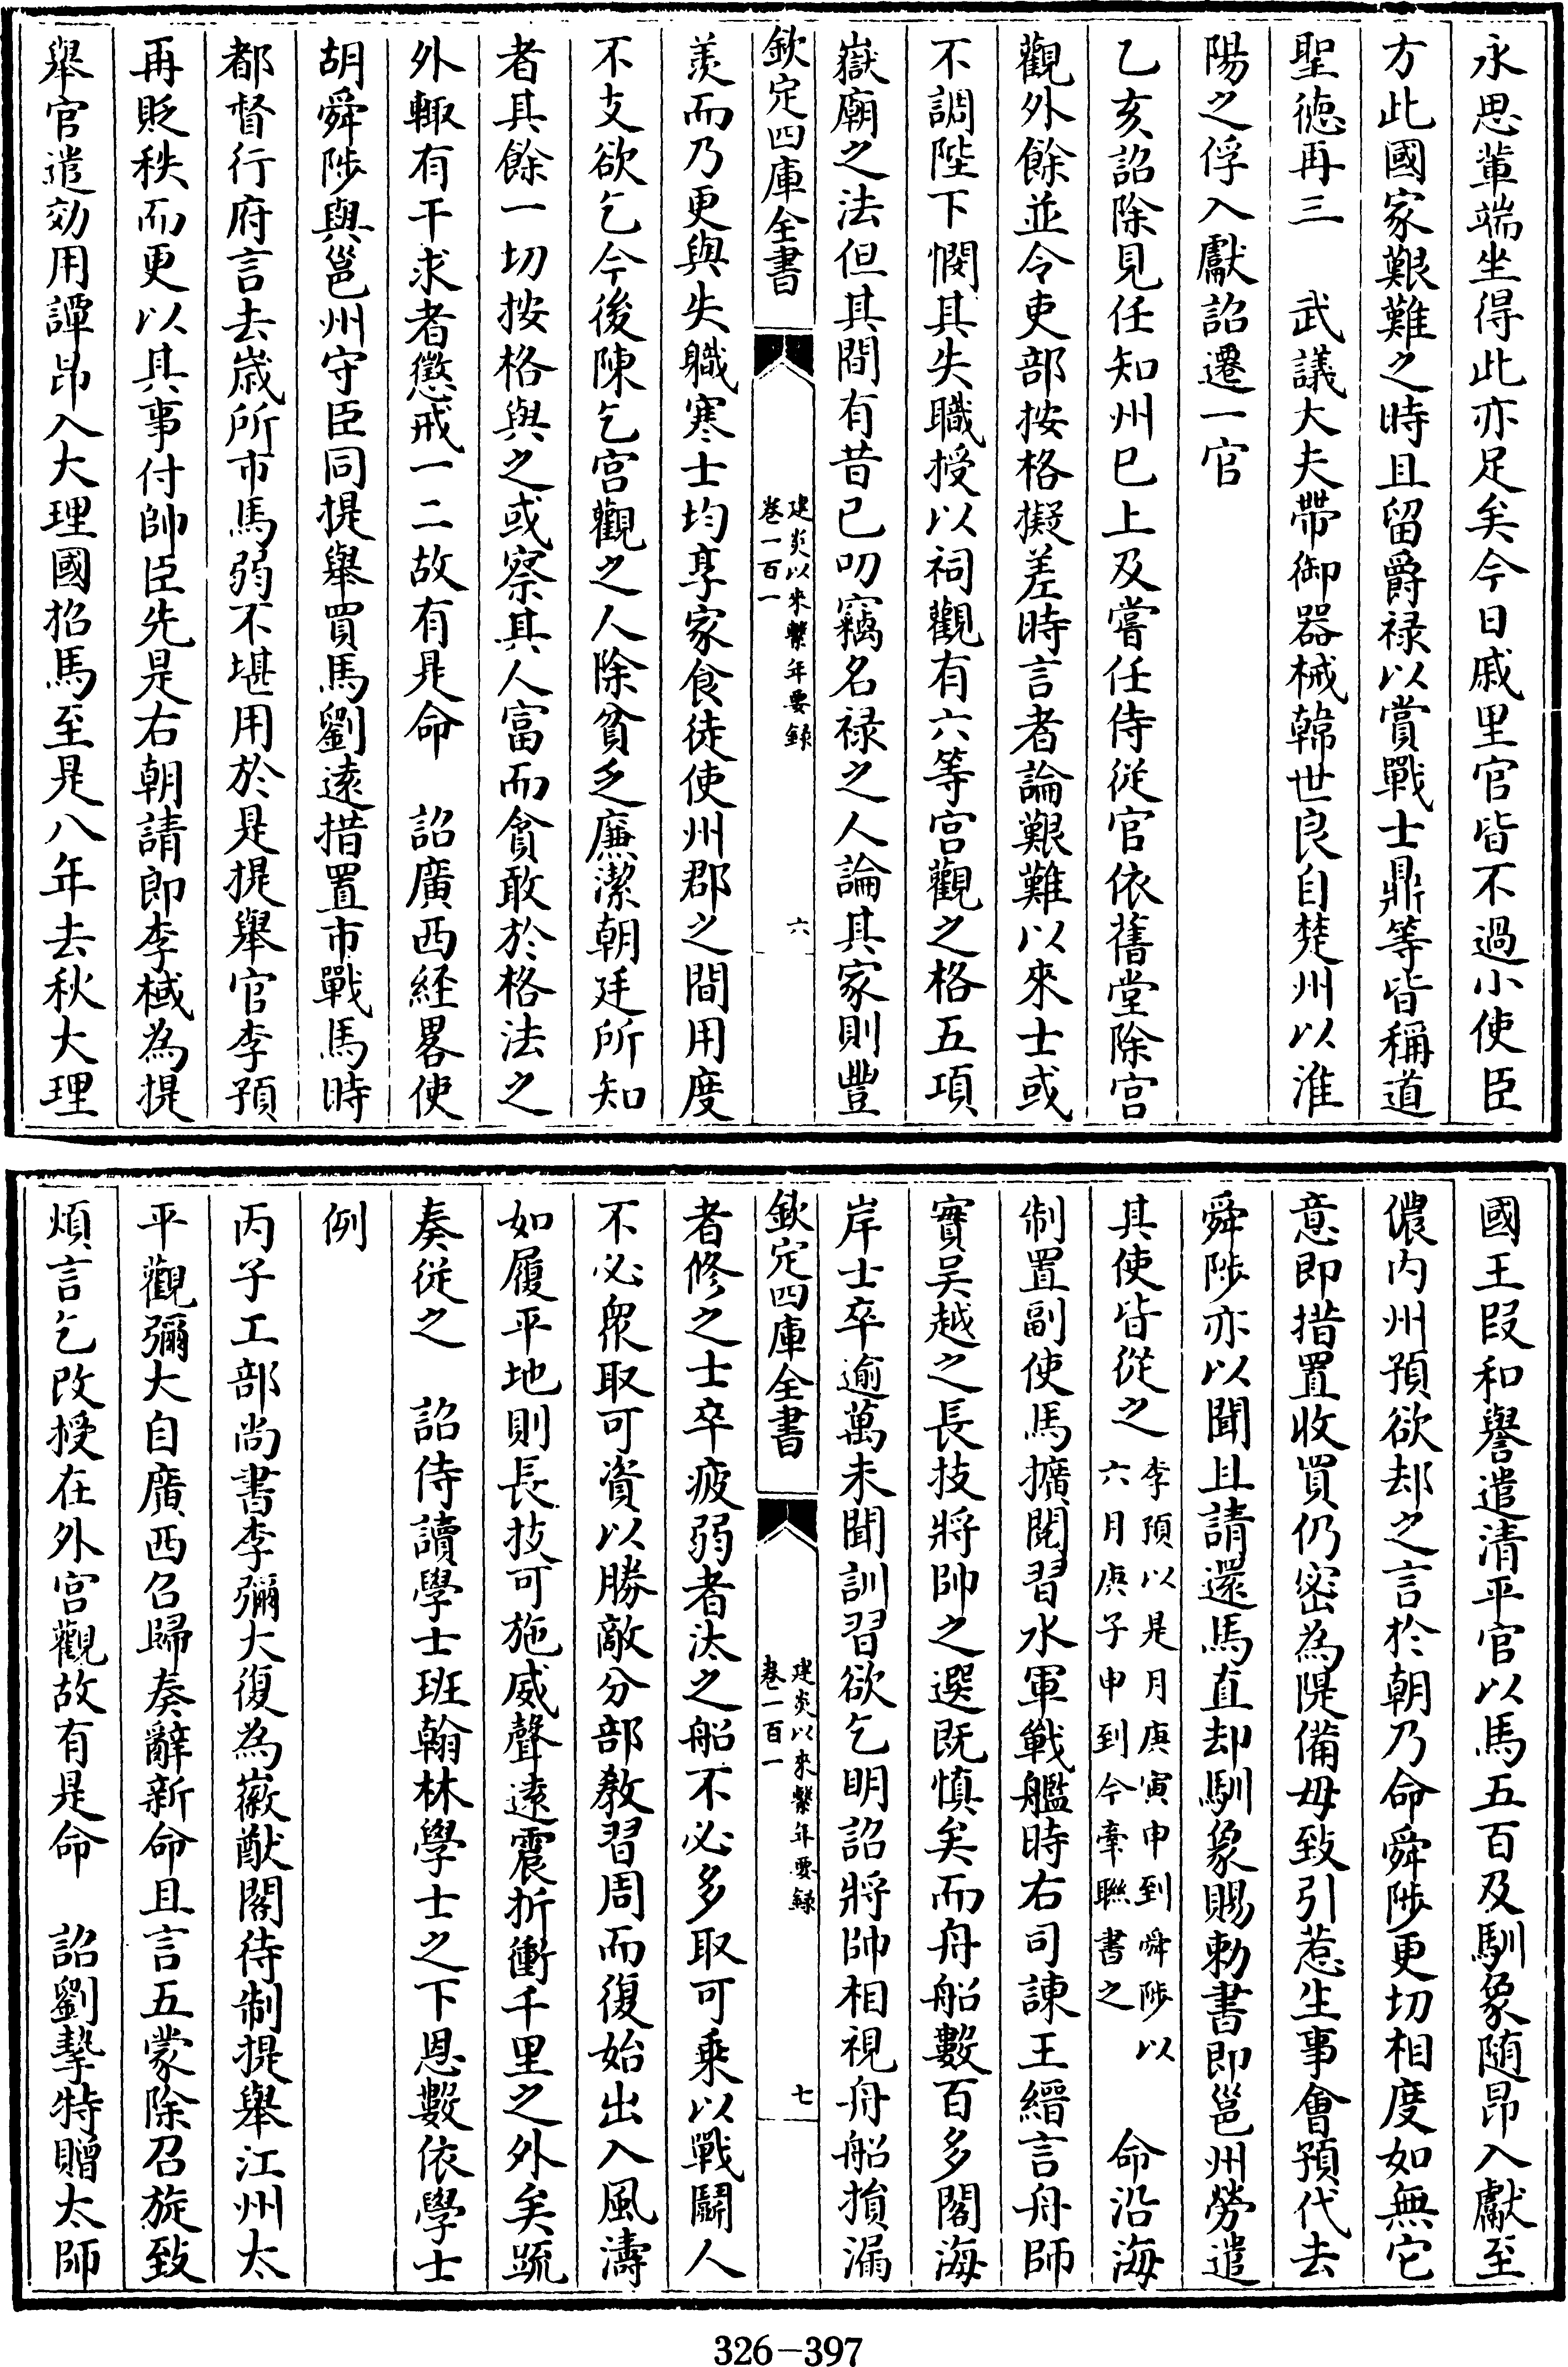 永思輩端坐得此亦足矣今日戚里官皆不過小使臣
方此國家艱難之時且留爵禄以賞戰士鼎等皆稱道
聖徳再三　武議大夫帶御器械韓世良自楚州以淮
陽之俘入獻詔遷一官
乙亥詔除見任知州已上及嘗任侍從官依舊堂除宫
觀外餘並令吏部按格擬差時言者論艱難以來士或
不調陛下憫其失職授以祠觀有六等宫觀之格五項
嶽廟之法但其間有昔已叨竊名禄之人論其家則豐
欽定四庫全書
建炎以來繫年要録
卷一百一
六
羨而乃更與失職寒士均享家食徒使州郡之間用度
不支欲乞今後陳乞宫觀之人除貧乏廉潔朝廷所知
者其餘一切按格與之或察其人富而貪敢於格法之
外輙有干求者懲戒一二故有是命　詔廣西經畧使
胡舜陟與邕州守臣同提舉買馬劉逺措置市戰馬時
都督行府言去嵗所市馬弱不堪用於是提舉官李預
再貶秩而更以其事付帥臣先是右朝請郎李棫為提
舉官遣効用譚昂入大理國招馬至是八年去秋大理
國王段和譽遣清平官以馬五百及馴象随昂入獻至
儂内州預欲却之言於朝乃命舜陟更切相度如無它
意即措置收買仍密為隄備毋致引惹生事會預代去
舜陟亦以聞且請還馬直却馴象賜勅書即邕州勞遣
其使皆從之李預以是月庚寅申到舜陟以
六月庚子申到今牽聯書之　命沿海
制置副使馬擴閲習水軍戰艦時右司諫王縉言舟師
實吴越之長技將帥之選既慎矣而舟船數百多閣海
岸士卒逾萬未聞訓習欲乞明詔將帥相視舟船損漏
欽定四庫全書
建炎以來繫年要録
卷一百一
七
者修之士卒疲弱者汰之船不必多取可乗以戰鬭人
不必衆取可資以勝敵分部教習周而復始出入風濤
如履平地則長技可施威聲逺震折衝千里之外矣䟽
奏從之　詔侍讀學士班翰林學士之下恩數依學士
例
丙子工部尚書李彌大復為徽猷閣待制提舉江州太
平觀彌大自廣西召歸奏辭新命且言五蒙除召旋致
煩言乞改授在外宫觀故有是命　詔劉摯特贈太師
326-397